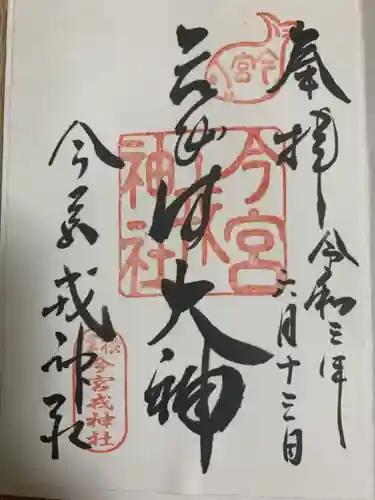 奉拝
令和三年
六月十三日
今宮
ゑびす大神
今宮戎神社
今宮戎神社
今宮戎神社